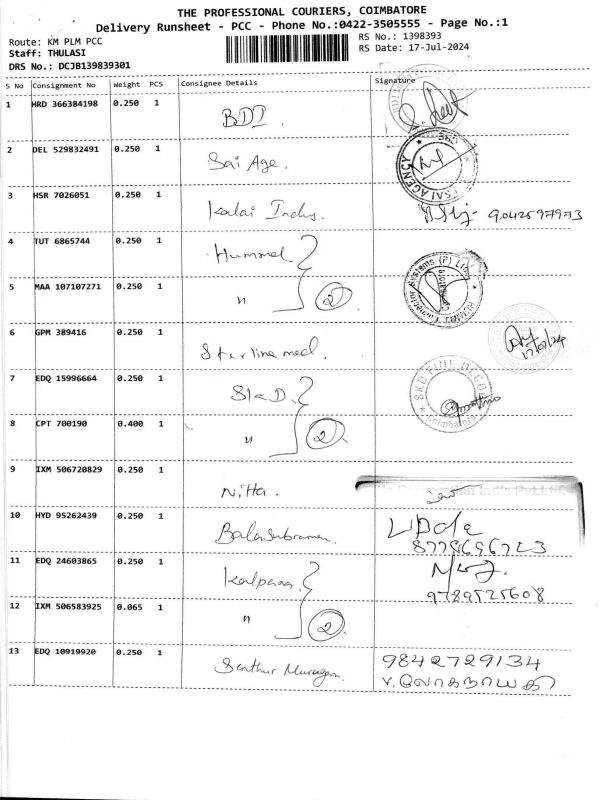 THE PROFESSIONAL COURIERS, COIMBATORE
Delivery Runsheet - PCC - Phone No.:0422-3505555 - Page No.:1
Route: KM PLM PCC
RS No.: 1398393
Staff: THULASI
RS Date: 17-Jul-2024
DRS No.: DCJB139839301
S No Consignment No Weight PCS Consignee Details Signature
1 HRD 366384198 0.250 1
BDI
2 DEL 529832491 0.250 1
Sai Age.
SAI AGENCY
3 HSR 7026051 0.250 1
Kalai Indus.
9042597973
4 TUT 6865744 0.250 1
Hummel
5 MAA 107107271 0.250 1
" 2
6 GPM 389416 0.250 1
Sterlinemed.
17/07/24
7 EDQ 15996664 0.250 1
SKD
SKD FINE DECOR
Coimbatore
8 CPT 700190 0.400 1
" 2
9 IXM 506720829 0.250 1
Nitta.
India Pvt Ltd
10 HYD 95262439 0.250 1
Balasubraman.
8778696723
11 EDQ 24603865 0.250 1
Kalpana
9789525608
12 IXM 506583925 0.065 1
" 2
13 EDQ 10919920 0.250 1
Senthur Murugan.
9842729134
v.லோகநாயகி